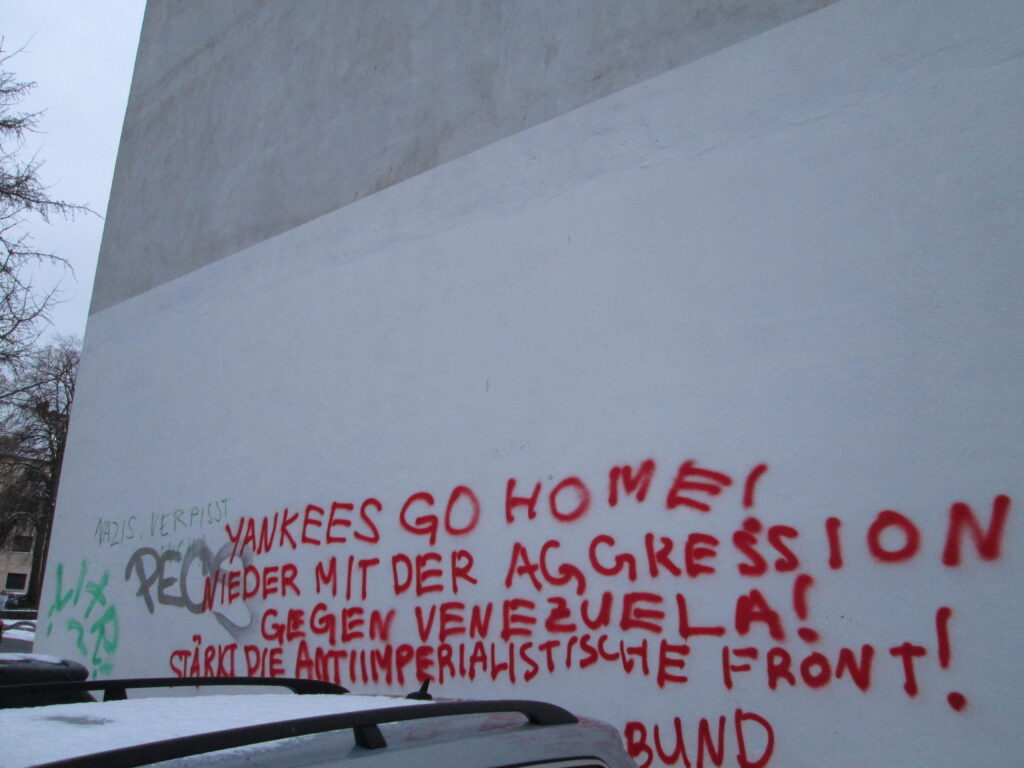 NAZIS, VERPISST
YANKEES GO HOME!
NIEDER MIT DER AGGRESSION
GEGEN VENEZUELA!
STÄRKT DIE ANTIIMPERIALISTISCHE FRONT!
BUND